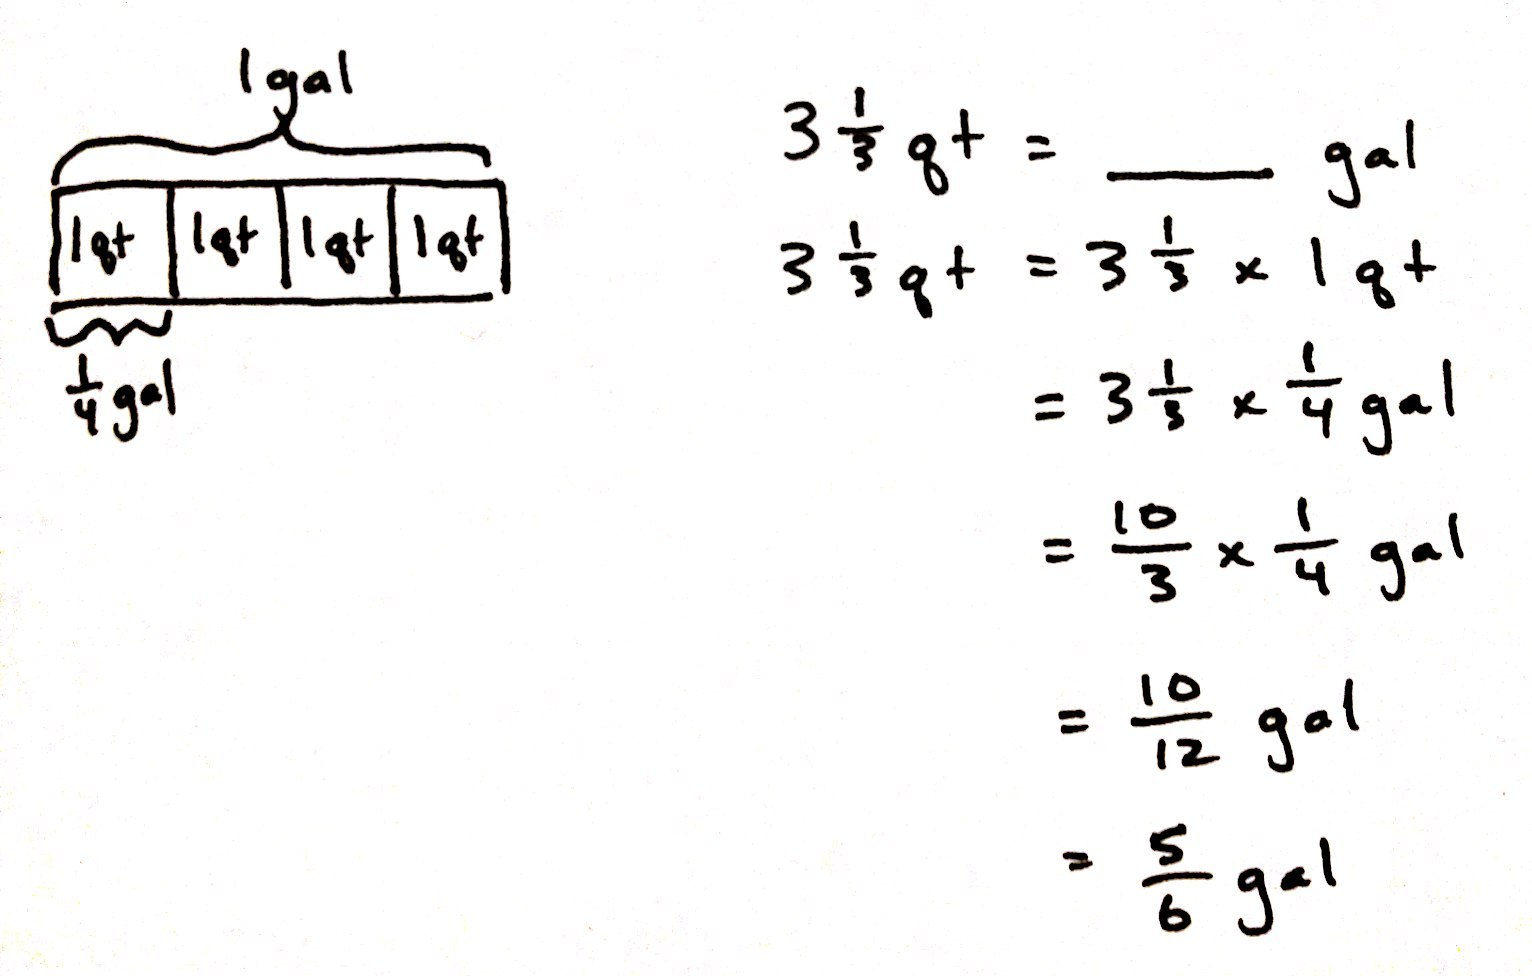 1 gal
1qt 1qt 1qt 1qt
1/4 gal
3 1/3 qt = ____ gal
3 1/3 qt = 3 1/3 x 1 qt
= 3 1/3 x 1/4 gal
= 10/3 x 1/4 gal
= 10/12 gal
= 5/6 gal